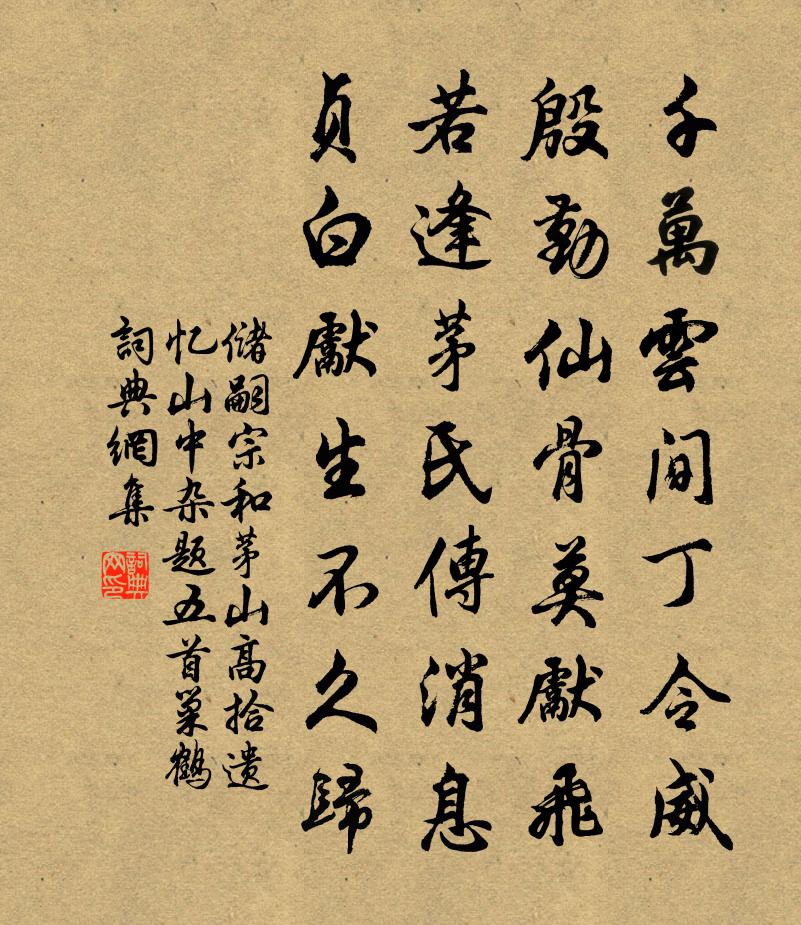 千萬雲間丁令威
殷勤仙骨莫獻飛
若逢茅氏傳消息
貞白獻生不久歸
储嗣宗和茅山高拾遗
忆山中杂题五首巢鶴
詞典網集
詞典网印